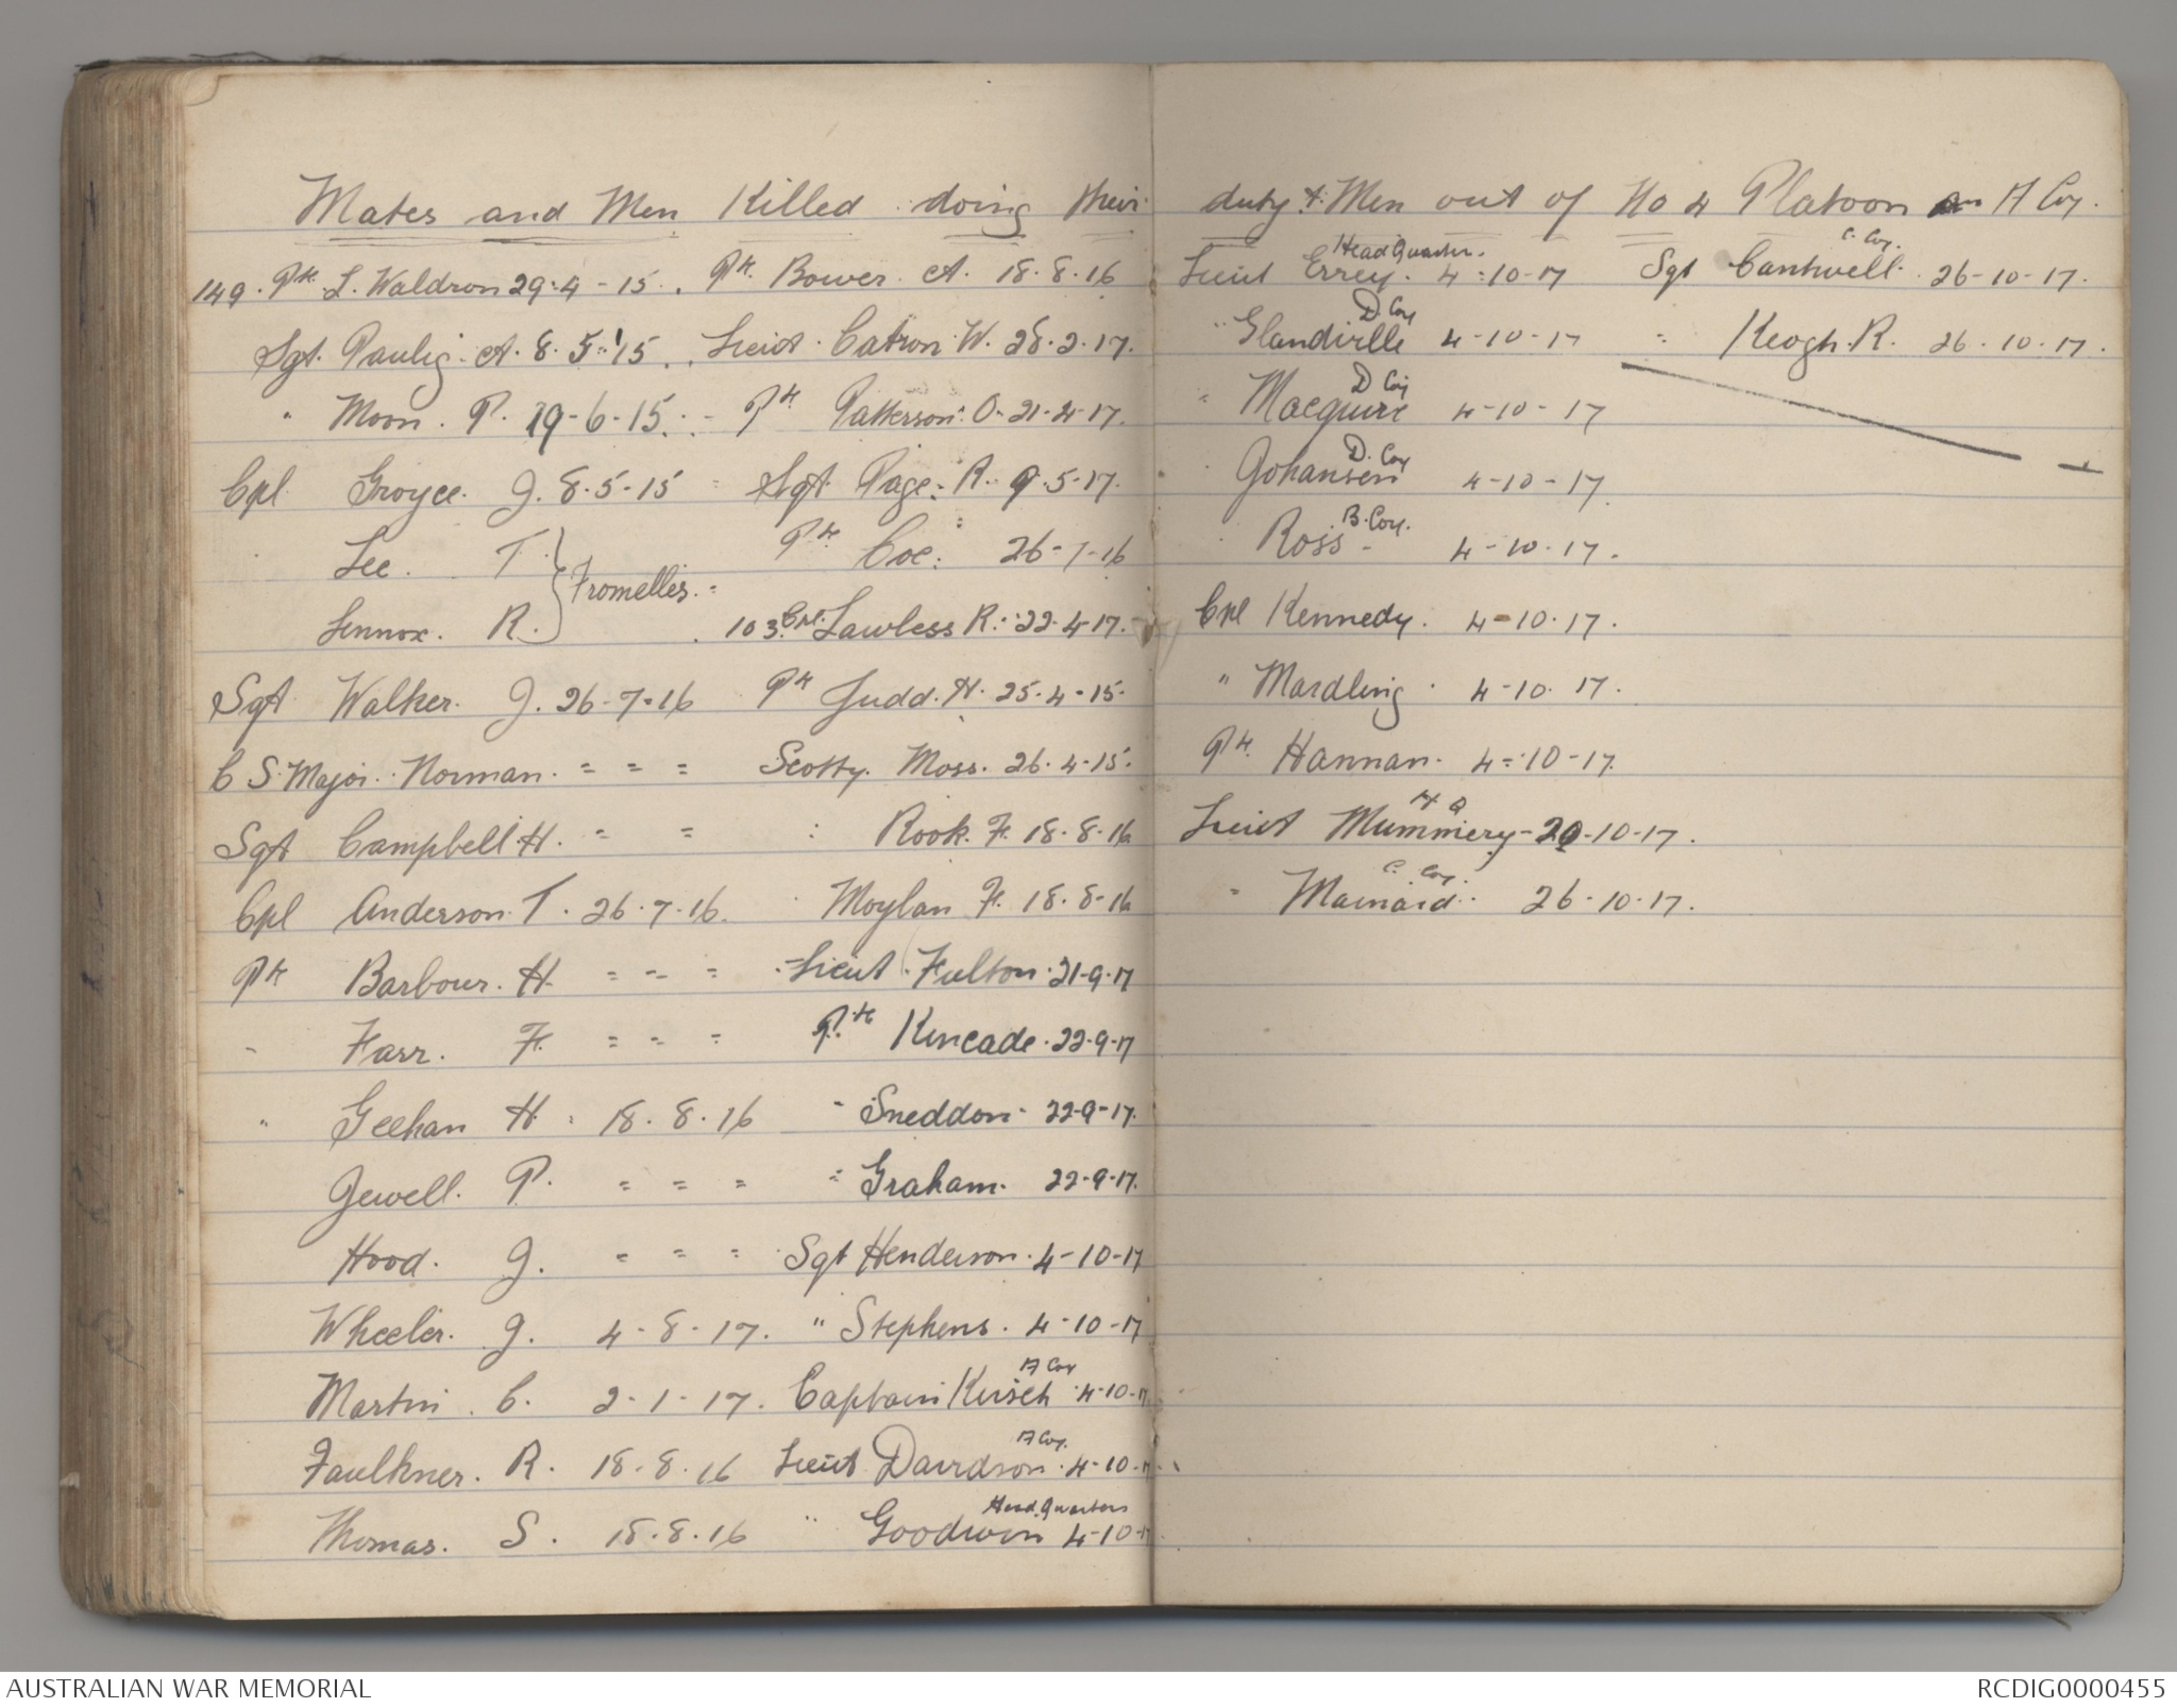 Mates and Men Killed doing their
149. Pte. L. Waldron 29-4-15. Pte. Bower. A. 18.8.16
Sgt. Paulig. A. 8.5.15. Lieut. Catron W. 28.2.17.
" Moon. P. 19-6-15. Pte Patterson. O. 21-4-17.
Cpl Groyce. J. 8.5.15 Sgt. Page. R. 9.5.17.
Lee. T. Pte Coe. 26-7-16
Fromelles.
Lennox. R. 103. Cpl. Lawless R. 22-4-17.
Sgt Walker. J. 26-7-16 Pte Judd. H. 25.4.15.
C S. Major. Norman. = = = Scotty. Moss. 26.4.15.
Sgt Campbell H. = = : Rook. F. 18.8.16
Cpl Anderson T. 26.7.16. Moylan F. 18.8.16
Pte Barbour. H. = = = Lieut. Fulton 21-9-17
" Farr. F. = = = Pte Kincade. 22-9-17
" Geehan H. 18.8.16 " Sneddon 22-9-17.
Jewell. P. = = = " Graham. 22-9-17.
Hood. J. = = = Sgt Henderson. 4-10-17
Wheeler. J. 4-8-17. " Stephens. 4-10-17
A Coy
Martin. C. 2-1-17. Captain Kirsch 4-10-17
A Coy.
Faulkner. R. 18.8.16 Lieut Davidson. 4-10-17.
Head Quarters
Thomas. S. 18.8.16 " Goodwin 4-10-17
duty & Men out of No 4 Platoon A Coy.
Head Quarter. C. Coy.
Lieut Errey. 4-10-17 Sgt Cantwell. 26-10-17.
D. Coy
" Glandville 4-10-17 " Keogh. R. 26.10.17.
D Coy
" Macquire 4-10-17
D. Coy
" Johansen 4-10-17
B. Coy.
Ross - 4-10-17.
Cpl Kennedy. 4-10.17.
" Mardling. 4-10.17.
Pte. Hannan. 4-10-17.
H Q
Lieut Mummery - 20-10-17.
C. Coy.
" Mainaid. 26-10-17.
AUSTRALIAN WAR MEMORIAL
RCDIG0000455